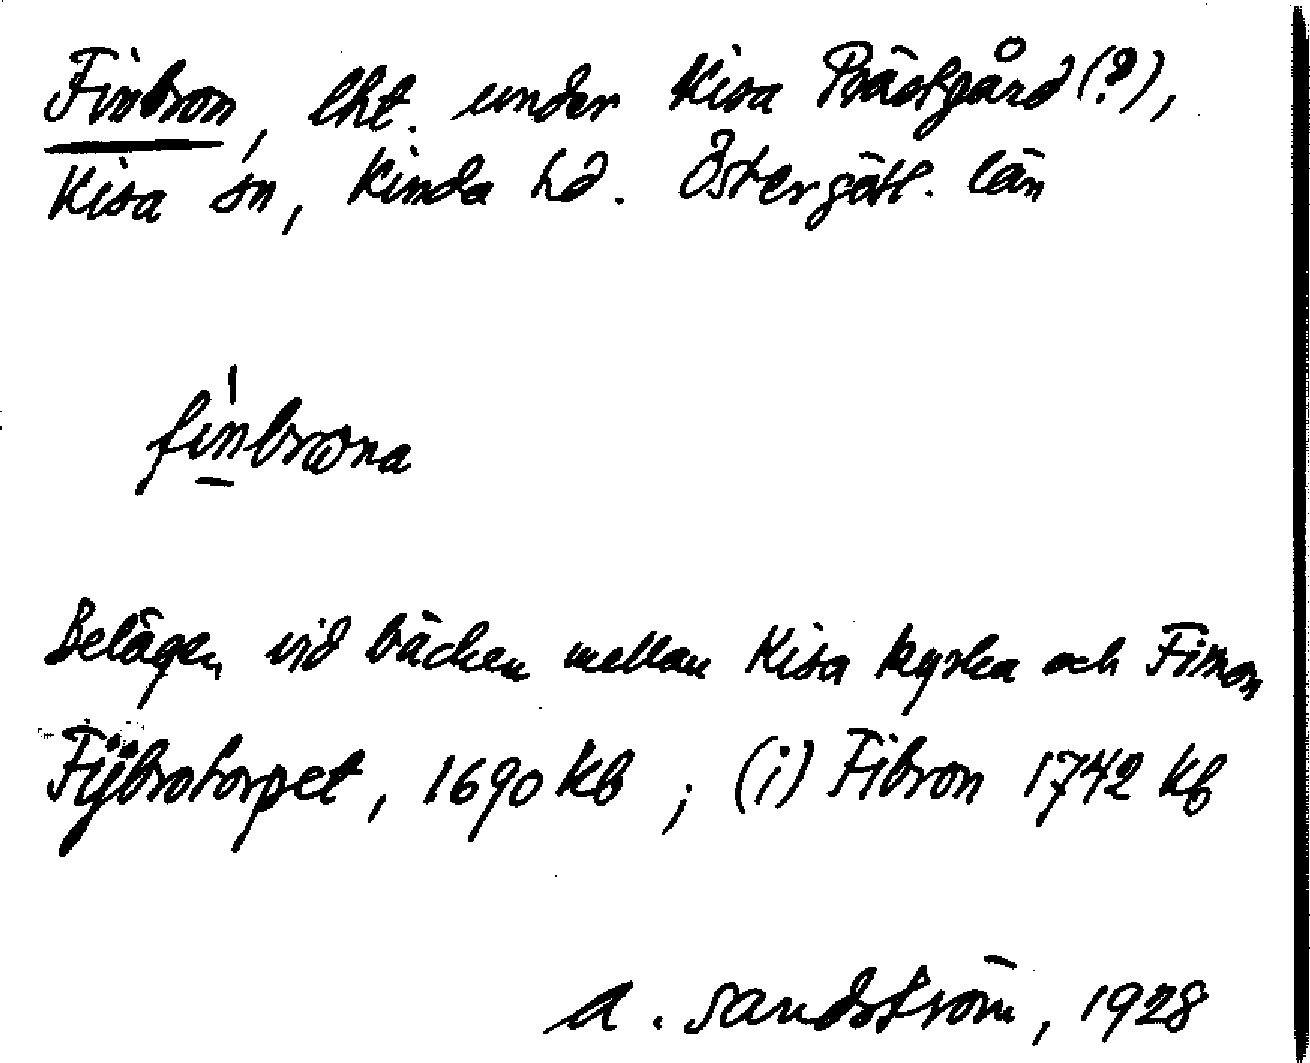 Finbron, lht. under Kisa Prästgård (?),
Kisa sn, Kinda hd. Östergötl. län
finbrona
Belägen vid bäcken mellan Kisa kyrka och
Fÿbrotorpet, 1690 Kb ; (i) Fibron 1742 Kb
A. Sandström, 1928